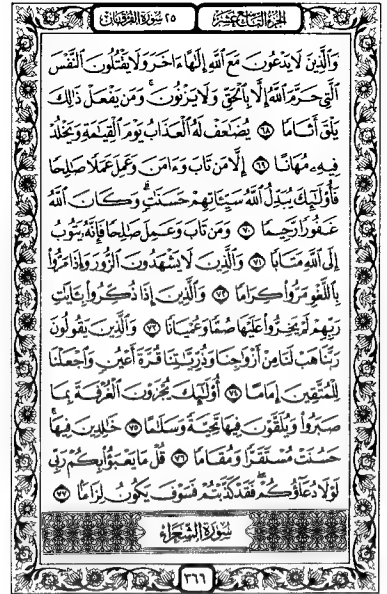 الجزء التاسع عشر ٢٥ سورة الفرقان
وَٱلَّذِينَ لَا يَدْعُونَ مَعَ ٱللَّهِ إِلَٰهًا ءَاخَرَ وَلَا يَقْتُلُونَ ٱلنَّفْسَ
ٱلَّتِي حَرَّمَ ٱللَّهُ إِلَّا بِٱلْحَقِّ وَلَا يَزْنُونَ ۚ وَمَن يَفْعَلْ ذَٰلِكَ
يَلْقَ أَثَامًا ٦٨ يُضَٰعَفْ لَهُ ٱلْعَذَابُ يَوْمَ ٱلْقِيَٰمَةِ وَيَخْلُدْ
فِيهِۦ مُهَانًا ٦٩ إِلَّا مَن تَابَ وَءَامَنَ وَعَمِلَ عَمَلًا صَٰلِحًا
فَأُو۟لَٰٓئِكَ يُبَدِّلُ ٱللَّهُ سَيِّـَٔاتِهِمْ حَسَنَٰتٍ ۗ وَكَانَ ٱللَّهُ
غَفُورًا رَّحِيمًا ٧٠ وَمَن تَابَ وَعَمِلَ صَٰلِحًا فَإِنَّهُۥ يَتُوبُ
إِلَى ٱللَّهِ مَتَابًا ٧١ وَٱلَّذِينَ لَا يَشْهَدُونَ ٱلزُّورَ وَإِذَا مَرُّوا۟
بِٱللَّغْوِ مَرُّوا۟ كِرَامًا ٧٢ وَٱلَّذِينَ إِذَا ذُكِّرُوا۟ بِـَٔايَٰتِ
رَبِّهِمْ لَمْ يَخِرُّوا۟ عَلَيْهَا صُمًّا وَعُمْيَانًا ٧٣ وَٱلَّذِينَ يَقُولُونَ
رَبَّنَا هَبْ لَنَا مِنْ أَزْوَٰجِنَا وَذُرِّيَّٰتِنَا قُرَّةَ أَعْيُنٍ وَٱجْعَلْنَا
لِلْمُتَّقِينَ إِمَامًا ٧٤ أُو۟لَٰٓئِكَ يُجْزَوْنَ ٱلْغُرْفَةَ بِمَا
صَبَرُوا۟ وَيُلَقَّوْنَ فِيهَا تَحِيَّةً وَسَلَٰمًا ٧٥ خَٰلِدِينَ فِيهَا ۚ
حَسُنَتْ مُسْتَقَرًّا وَمُقَامًا ٧٦ قُلْ مَا يَعْبَؤُا۟ بِكُمْ رَبِّي
لَوْلَا دُعَآؤُكُمْ ۖ فَقَدْ كَذَّبْتُمْ فَسَوْفَ يَكُونُ لِزَامًا ٧٧
سورة الشعراء
٣٦٦